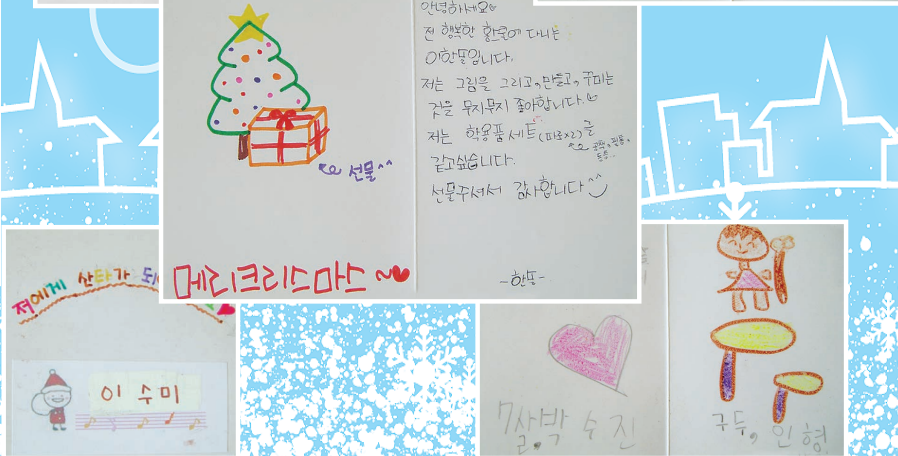 메리크리스마스
선물^^
안녕하세요
전 행복한 홈스쿨에 다니는
이한뜸입니다.
저는 그림을 그리고, 만들고, 꾸미는
것을 무지무지 좋아합니다.
저는 학용품세트(피초x2)를
공책, 필통,
등등..
갖고싶습니다.
선물주셔서 감사합니다^^
-한뜸-
저에게 산타가 되
이 수미
7살, 박 수 진
구두, 인형